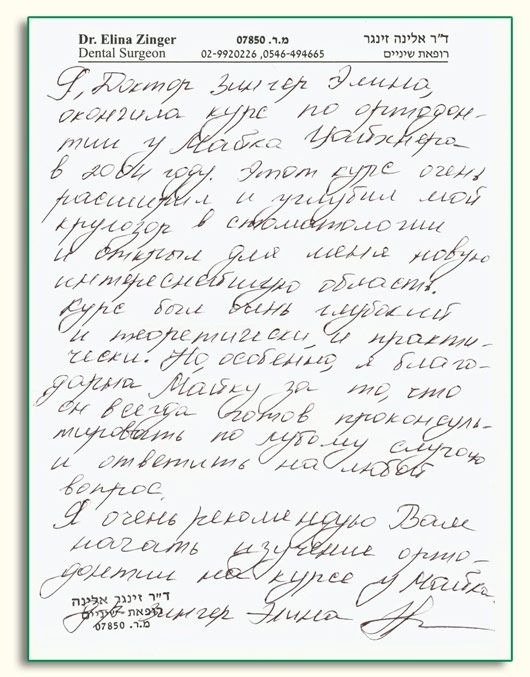 Dr. Elina Zinger
Dental Surgeon
מ.ר. 07850
02-9920226 ,0546-494665
ד"ר אלינה זינגר
רופאת שיניים
Я, Доктор Зингер Элина,
окончила курс по ортодон-
тии у Майка Цайхнера
в 2004 году. Этот курс очень
расширил и углубил мой
кругозор в стоматологии
и открыл для меня новую
интереснейшую область.
Курс был очень глубокий
и теоретически и практи-
чески. Но, особенно, я благо-
дарна Майку за то, что
он всегда готов проконсуль-
тировать по любому случаю
и ответить на любой
вопрос.
Я очень рекомендую Вам
начать изучение орто-
донтии на курсе у Майка.
Зингер Элина
ד"ר זינגר אלינה
רופאת שיניים
מ.ר. 07850